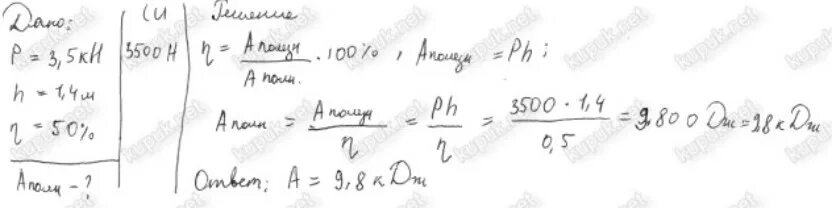 Дано:
P = 3,5 кН
h = 1,4 м
η = 50%
Аполн - ?
СИ
3500 Н
Решение
η = Аполезн / Аполн. · 100%, Аполезн = Ph;
Аполн = Аполезн / η = Ph / η = 3500 · 1,4 / 0,5 = 9800 Дж = 9,8 кДж
Ответ: А = 9,8 кДж
kupuk.net